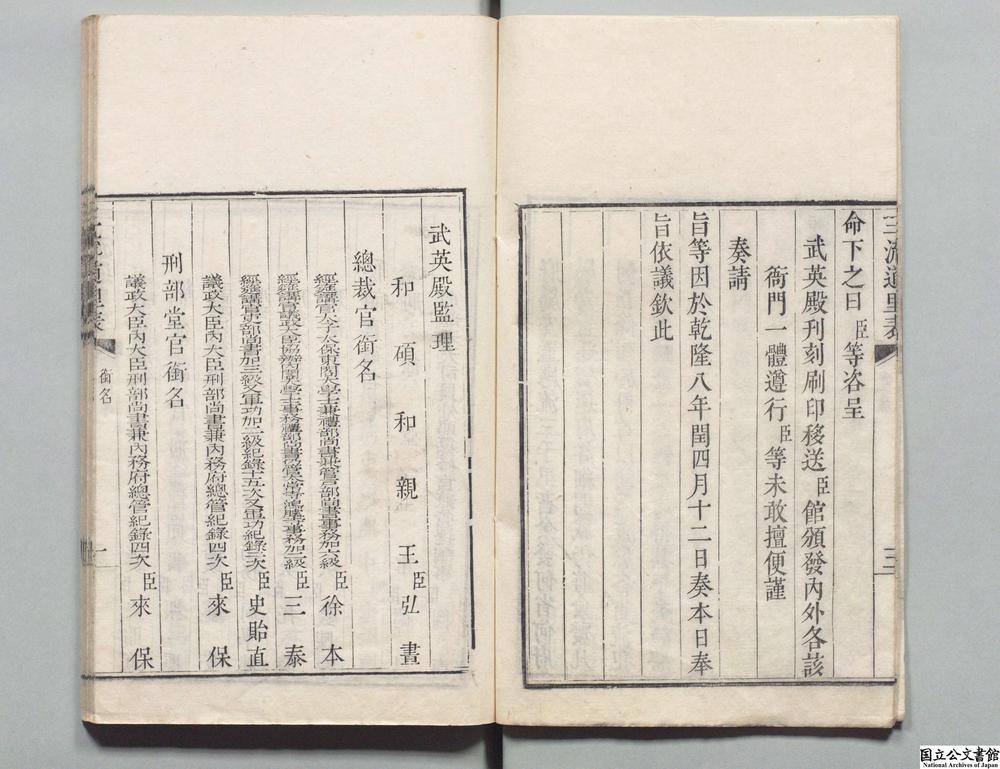 三流道里表
三
命下之日臣等咨呈
武英殿刊刻刷印移送臣館頒發內外各該
衙門一體遵行臣等未敢擅便謹
奏請
旨等因於乾隆八年閏四月十二日奏本日奉
旨依議欽此
武英殿監理
和碩和親王臣弘晝
總裁官銜名
經筵講官太子太保東閣大學士兼禮部尚書兼管戶部尚書事務加六級臣徐本
經筵講官議政大臣協辦內閣大學士事務禮部尚書仍管太常寺鴻臚寺事務加一級臣三泰
經筵講官吏部尚書加三級又軍功加二級紀錄十五次又軍功紀錄三次臣史貽直
議政大臣內大臣刑部尚書兼內務府總管紀錄四次臣來保
刑部堂官銜名
議政大臣內大臣刑部尚書兼內務府總管紀錄四次臣來保
三流道里表
銜名
一
国立公文書館
National Archives of Japan